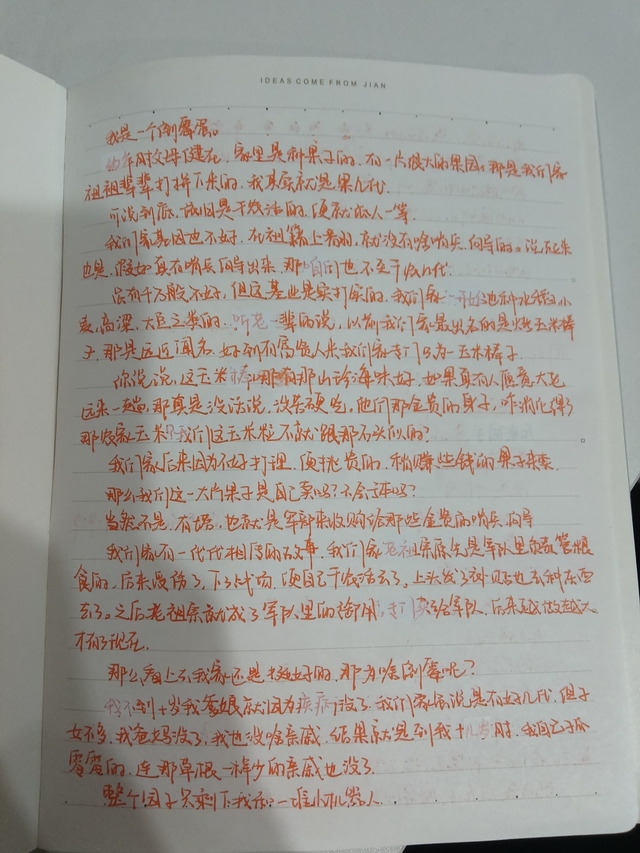 IDEAS COME FROM JIAN
我是一个倒霉蛋。
幼年时父母健在，家里是种果子的，有一片很大的果园，那是我们家
祖祖辈辈打拼下来的，我其实就是果N代
可说到底，依旧是干农活的，便就低人一等
我们家基因也不好，在祖籍上看，就没有啥哨兵，向导的。说起来
也是，假如真有哨兵向导出来，那咱们也不至于农N代。
虽有千万般不好，但这基业是实打实的，我们家一开始也种水稻，小
麦，高粱，大豆之类的，听老一辈的说，以前我们家最出名的是烤玉米棒
子，那是远近闻名，好到有富贵人来我们家专门只为一玉米棒子.
你说说，这玉米棒哪有那山珍海味好，如果真有人愿意大老
远来一趟，那真是没话说，没苦硬吃，他们那金贵的身子，咋消化得了
那农家玉米？我们这玉米粒不就跟那石头似的？
我们家后来因为不好打理，便挑贵的，稍赚些钱的果子来卖
那么我们这一大片果子是自己卖吗？不会坏吗？
当然不是，有塔，也就是军部来收购给那些金贵的哨兵向导
我们家有一代代相传的故事，我们家老祖亲原先是军队里负责管粮
食的，后来受伤了，下了战场，便自己干农活去了，上头发了补贴也去种东西
去了。之后老祖亲就成了军队里的御用，打包给军队，后来越做越大
才有了现在
那么看上去我家还是挺好的，那为啥倒霉呢？
我不到十岁我爹娘就因为疾病没了，我们家虽说是有好几代，但子
女不多，我爸妈没了，我也没啥亲戚，结果就是到我十几岁时，我自己孤
零零的，连那草根一样少的亲戚也没了
整个园子只剩下我和一堆小机器人